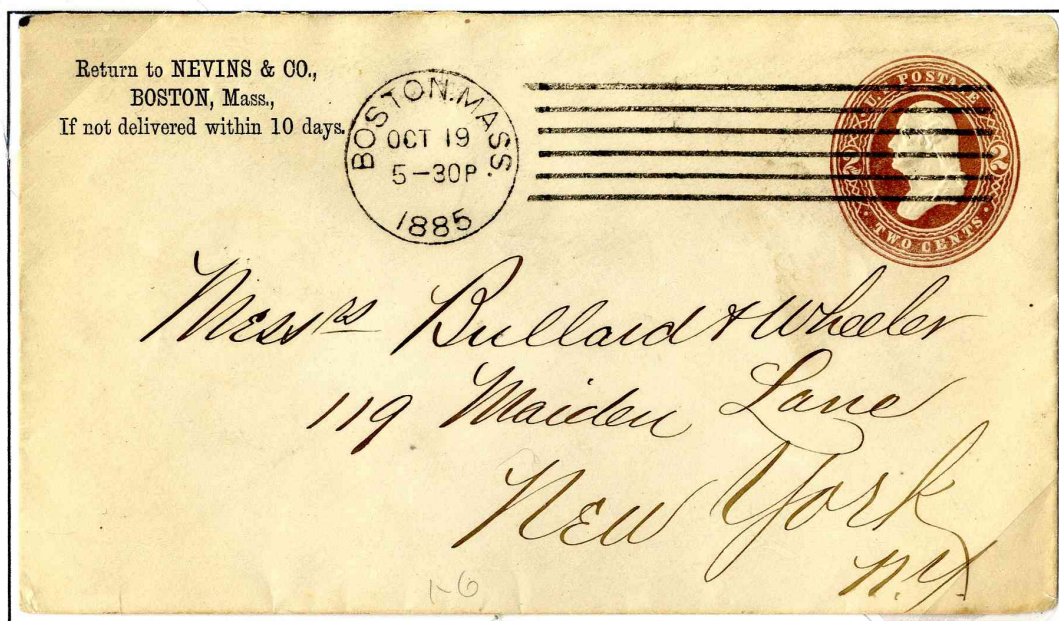 Return to NEVINS & CO.,
BOSTON, Mass.,
If not delivered within 10 days.
BOSTON. MASS.
OCT 19
5-30P
1885
U.S. POSTAGE
2 2
TWO CENTS
Messrs Bullard & Wheeler
119 Maiden Lane
New York
N.Y.
1-6